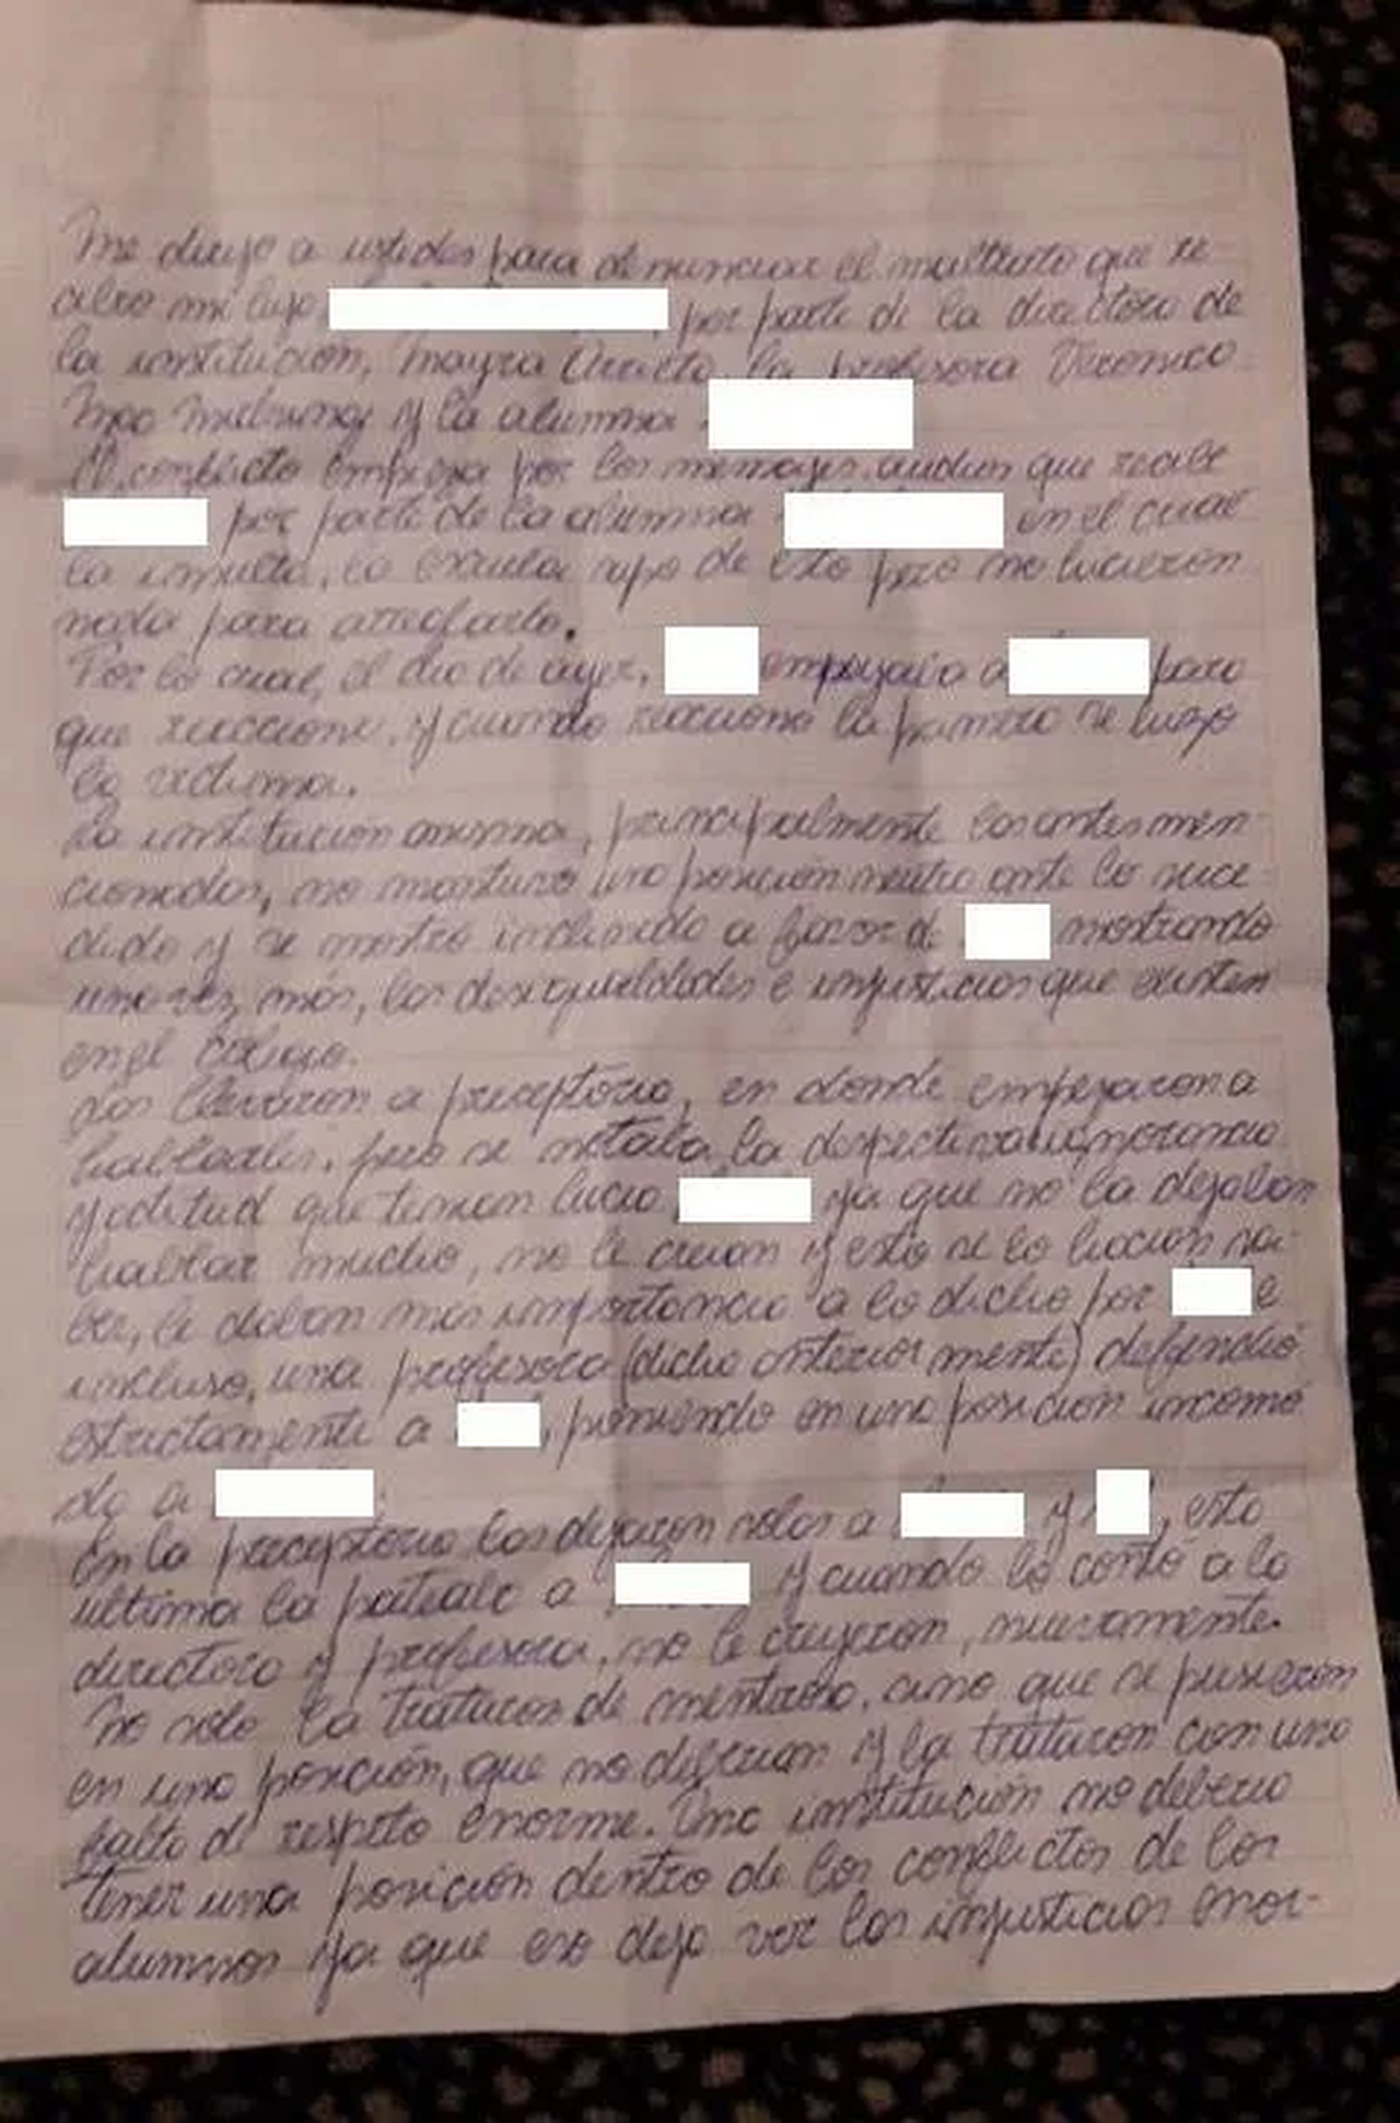 Me dirijo a ustedes para denunciar el maltrato que re
cibio mi hija , por parte de la directora de
la institución, Mayra la profesora Veronica
y la alumna
El conflicto empieza por los mensajes, audios que recibe
por parte de la alumna en el cual
la insulta, la escuela supo de esto pero no hicieron
nada para arreglarlo.
Por lo cual, el dia de ayer, empujaba a para
que reaccione, y cuando reacciono la primera se hizo
la victima.
La institución misma, principalmente los antes men-
cionados, no mantuvo una posición neutra ante lo suce-
dido y se mostró inclinado a favor de mostrando
una vez más, las desigualdades e injusticias que existen
en el colegio.
Las llevaron a preceptoria, en donde empezaron a
hablarles, pero se notaba la ignorancia
y actitud que tenian hacia ya que no la dejaban
hablar mucho, no le creian y esto se lo hacian sa-
ber, le daban más importancia a lo dicho por e
incluso, una profesora (dicha anteriormente) defendió
estrictamente a , poniendo en una posición incomo
da a
En la preceptoria las dejaron solas a y , esta
ultima la pateale a y cuando lo contó a la
directora y profesora, no le creyeron, nuevamente.
No solo la trataron de mentirosa, sino que se pusieron
en una posición, que no debian y la trataron con una
falta de respeto enorme. Una institución no deberia
tener una posición dentro de los conflictos de los
alumnos ya que eso deja ver las injusticias enor-